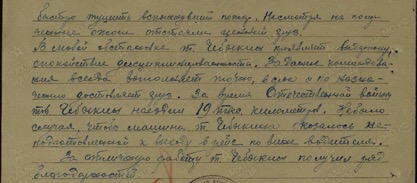 быстро тушить вспыхнувший пожар. Несмотря на полу-
ченные ожоги отстояли ценный груз.
В любой обстановке т. Чебыкин проявляет выдержку,
спокойствие дисциплинированность. Задание командова-
ния всегда выполняет точно, в срок и по назна-
чению доставляет груз. За время Отечественной войны
тов. Чебыкин наездил 19 тыс. километров. Не было
случая, чтобы машина т. Чебыкина оказалась не-
подготовленной к выезду в рейс по вине водителя.
За отличную работу т. Чебыкин получил ряд
благодарностей